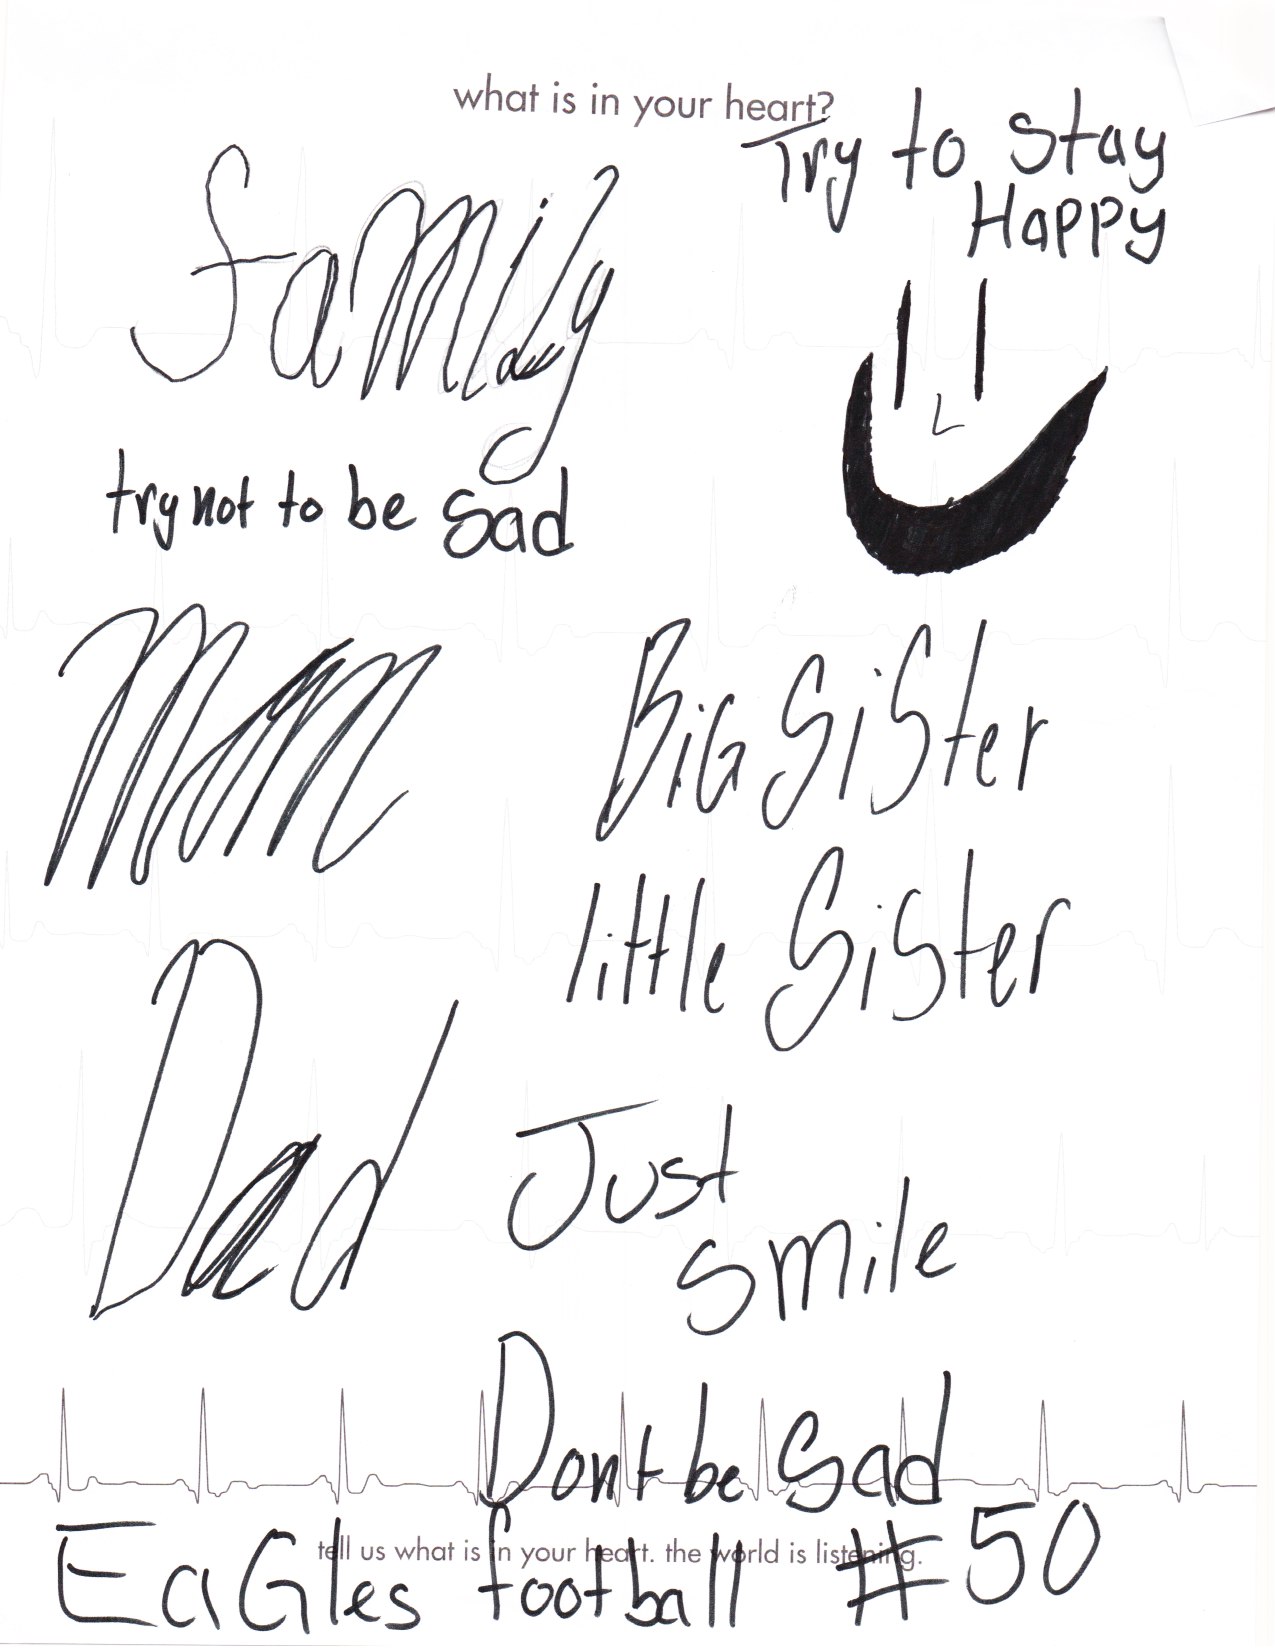 what is in your heart?
Try to stay
Happy
family
try not to be sad
Mom
Big Sister
little Sister
Dad
Just
smile
Dont be Sad
tell us what is in your heart. the world is listening.
EaGles football #50